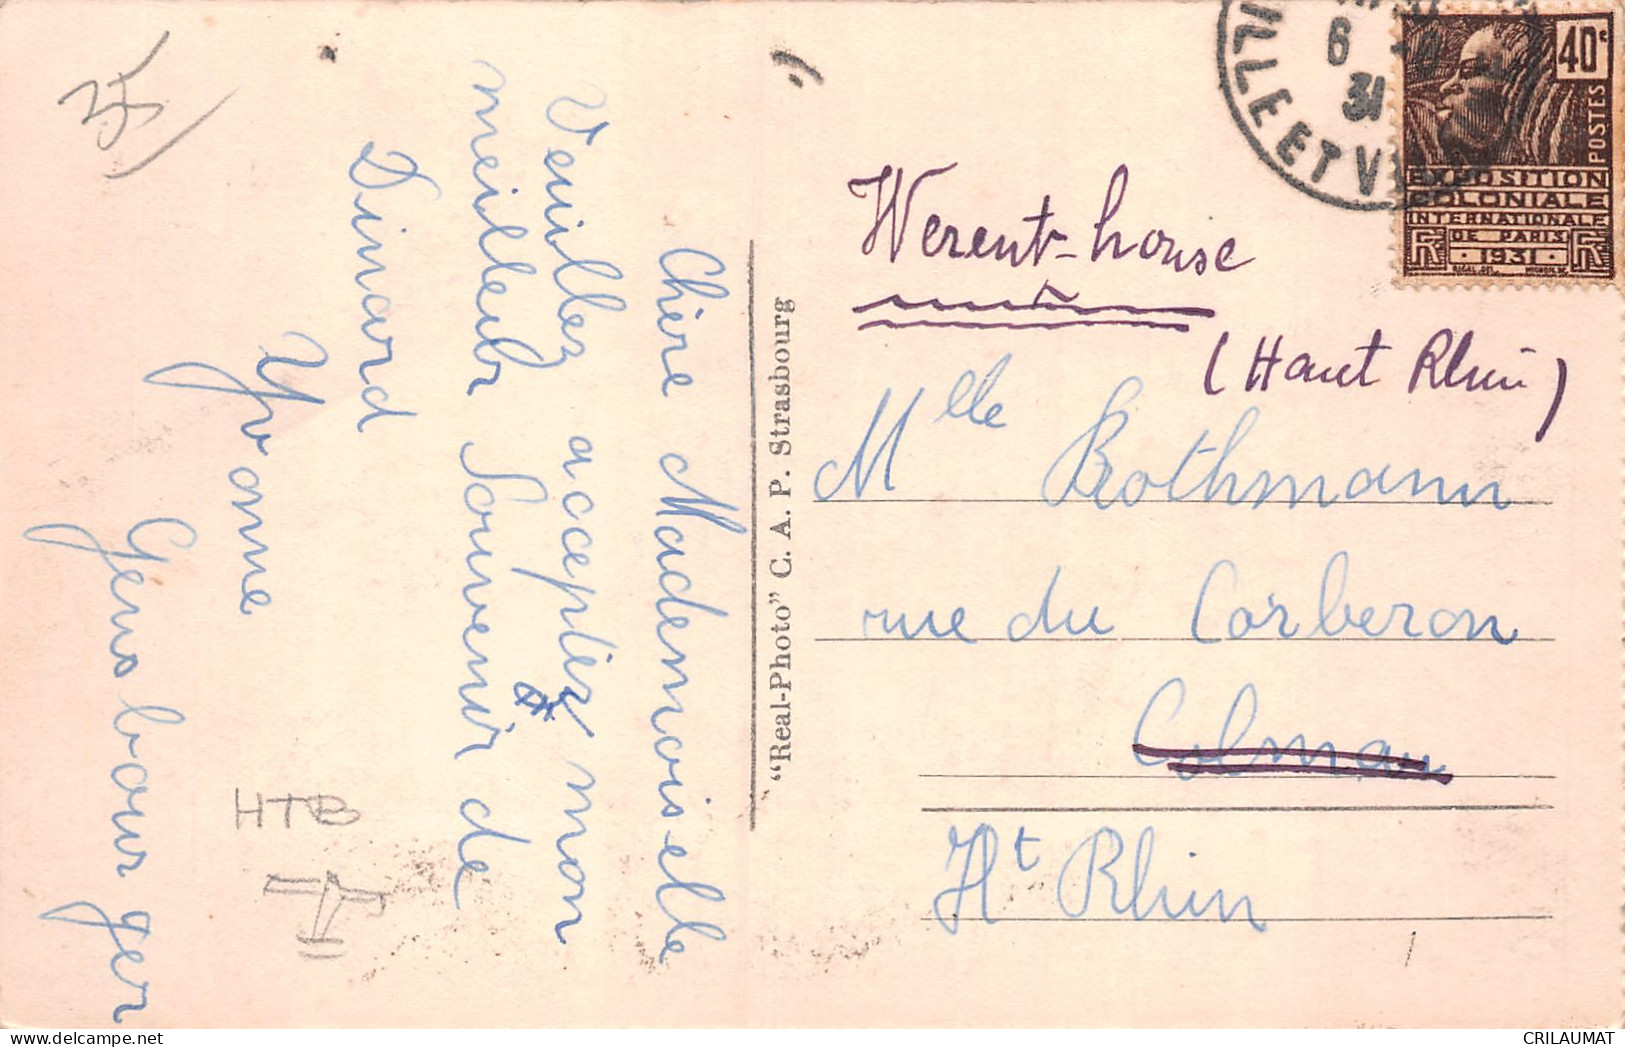 35
Chère Mademoiselle
Veuillez accepter mon
meilleur Souvenir de
Dinard
Yvonne
Gensbourger
HTB
"Real-Photo" C. A. P. Strasbourg
6
31
ILLE ET V
40c
POSTES
EXPOSITION
COLONIALE
INTERNATIONALE
DE PARIS
1931
RF RF
Werent-house
(Haut Rhin)
Mlle Rothmann
rue du Corberon
Colmar
Ht Rhin
CRILAUMAT